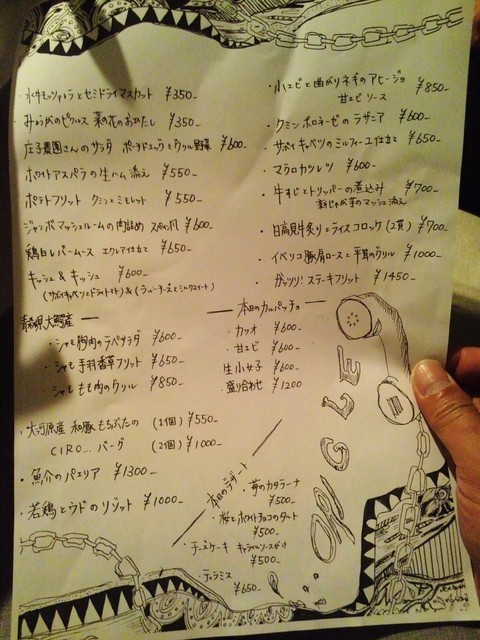 水牛モッツァレラとセミドライマスカット ¥350-
みょうがのピクルス 菜の花のおひたし ¥350-
庄子農園さんのサラダ ポーチドエッグとグリル野菜 ¥600-
ホワイトアスパラの生ハム添え ¥550-
ポテトフリット クミンとミモレット ¥550-
ジャンボマッシュルームの肉詰め スペイン風 ¥600-
鶏白レバームース エクレア仕立て ¥650-
キッシュ&キッシュ ¥600-
(サボイキャベツとドライトマト)&(ブルーチーズとシルクスイート)
青森県大鰐産
・シャモ胸肉のテバサラダ ¥600-
・シャモ手羽香草フリット ¥650-
・シャモもも肉のグリル ¥850-
・大河原産 和豚もちぶたの (1個) ¥550-
CIRO...バーグ (2個) ¥1000-
・魚介のパエリア ¥1300-
・若鶏とウドのリゾット ¥1000-
・小エビと曲がりネギのアヒージョ ¥850-
甘エビソース
・クミンボロネーゼのラザニア ¥600-
・サボイキャベツのミルフィーユ仕立て ¥650-
・マラロカツレツ ¥600-
・牛すじとトリッパーの煮込み ¥700-
新じゃが芋のマッシュ添え
・日高見牛炙りとライスコロッケ (2貫) ¥700-
・イベリコ豚肩ロースと平茸のグリル ¥1000-
・ガッツリ!ステーキフリット ¥1450-
本日のカルパッチョ
・カツオ ¥600-
・甘エビ ¥600-
生小女子 ¥600-
盛り合わせ ¥1200
本日のデザート
・苺のカタラーナ
¥500-
・桜とホワイトチョコのタルト
¥500-
・チーズケーキ キャラメルソースがけ
¥500-
・ティラミス
¥650-
GLE